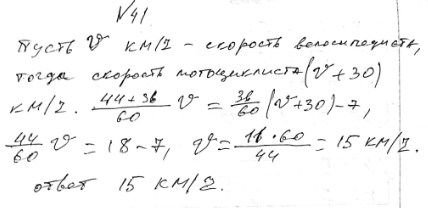 №41
Пусть v км/ч – скорость велосипедиста,
тогда скорость мотоциклиста (v + 30)
км/ч. \frac{44+36}{60} v = \frac{36}{60} (v+30) – 7,
\frac{44}{60} v = 18 – 7, v = \frac{11 · 60}{44} = 15 км/ч.
ответ 15 км/ч.